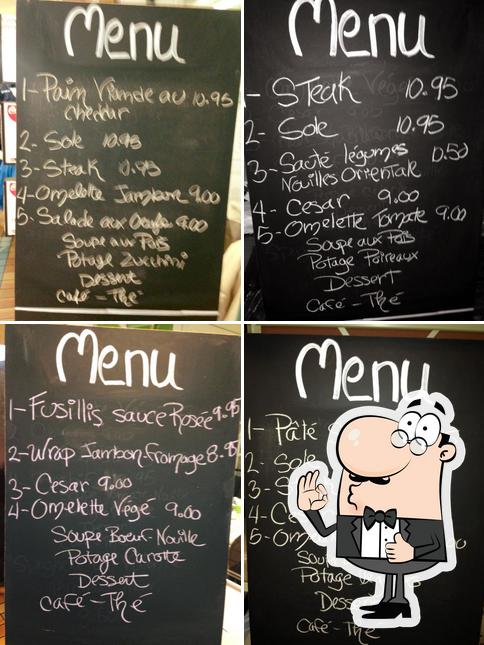 Menu
1- Pain Viande au 10.95
cheddar
2- Sole 10.95
3- Steak 10.95
4- Omelette Jambon 9.00
5- Salade aux Oeufs 9.00
Soupe aux Pois
Potage Zucchini
Dessert
Café - Thé
Menu
- Steak 10.95
2- Sole 10.95
3- Sauté légumes 10.50
Nouilles Orientale
4- Cesar 9.00
5- Omelette Tomate 9.00
Soupe aux Pois
Potage Poireaux
Dessert
Café - Thé
Menu
1- Fusillis sauce Rosée 9.95
2- Wrap Jambon-fromage 8.95
3- Cesar 9.00
4- Omelette Végé 9.00
Soupe Boeuf-Nouille
Potage Carotte
Dessert
Café - Thé
Menu
1- Pâté
2- Sole
3- S
4- Ce
5- Om
Sou
Potage
Dess
Café - Thé